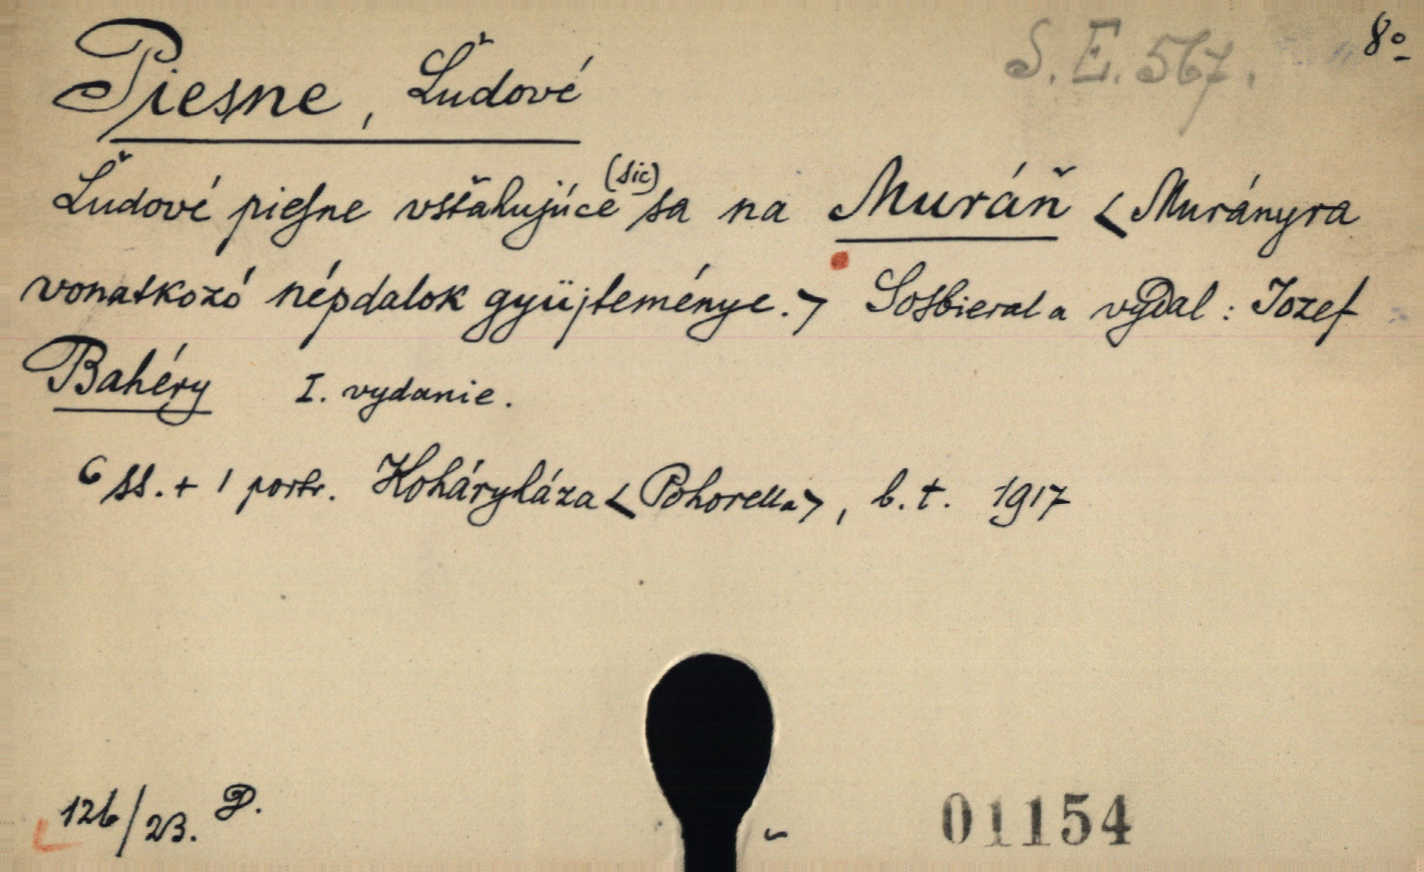 S. E. 567. 8º
Piesne, Ľudové
Ľudové piesne vsťahujúce (sic) sa na Muráň <Murányra
vonatkozó népdalok gyüjteménye.> Sosbieral a vydal: Jozef
Bahéry I. vydanie.
6 ss. + 1 portr. Koháryháza <Pohorella>, b. t. 1917
126/23. P.
01154